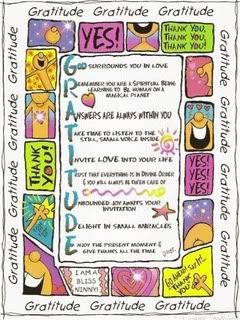 Gratitude Gratitude Gratitude
YES!
THANK YOU,
THANK YOU,
THANK YOU!
GOD SURROUNDS YOU IN LOVE
REMEMBER YOU ARE A SPIRITUAL BEING
LEARNING TO BE HUMAN ON A
MAGICAL PLANET
ANSWERS ARE ALWAYS WITHIN YOU
TAKE TIME TO LISTEN TO THE
STILL, SMALL VOICE INSIDE
INVITE LOVE INTO YOUR LIFE
TRUST THAT EVERYTHING IS IN DIVINE ORDER
& YOU WILL ALWAYS BE TAKEN CARE OF
UNBOUNDED JOY AWAITS YOUR
INVITATION
DELIGHT IN SMALL MIRACLES
ENJOY THE PRESENT MOMENT &
GIVE THANKS ALL THE TIME
THANK
YOU!
YES!
YES!
YES!
I AM A
BLISS
NINNY!
THANK
YOU!
Gratitude Gratitude Gratitude
Gratitude Gratitude Gratitude Gratitude
Gratitude Gratitude Gratitude Gratitude